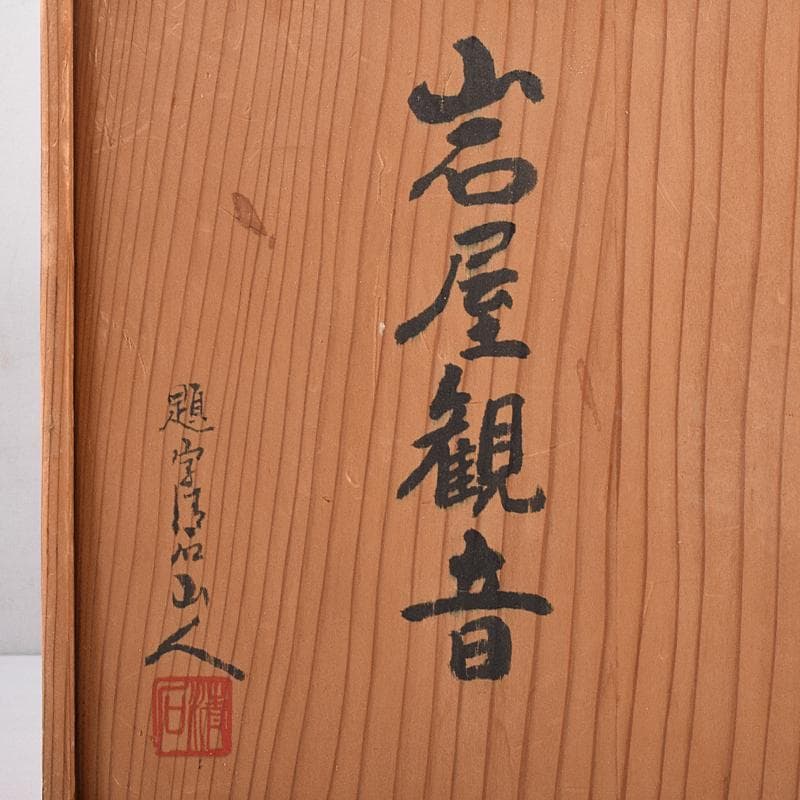 岩屋観音
題字清石山人
清石